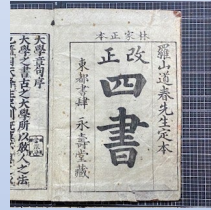 林家正本
羅山道春先生定本
改正
四書
東都書肆 永壽堂藏
大學章句序
大學之書古之大學所以教人之法